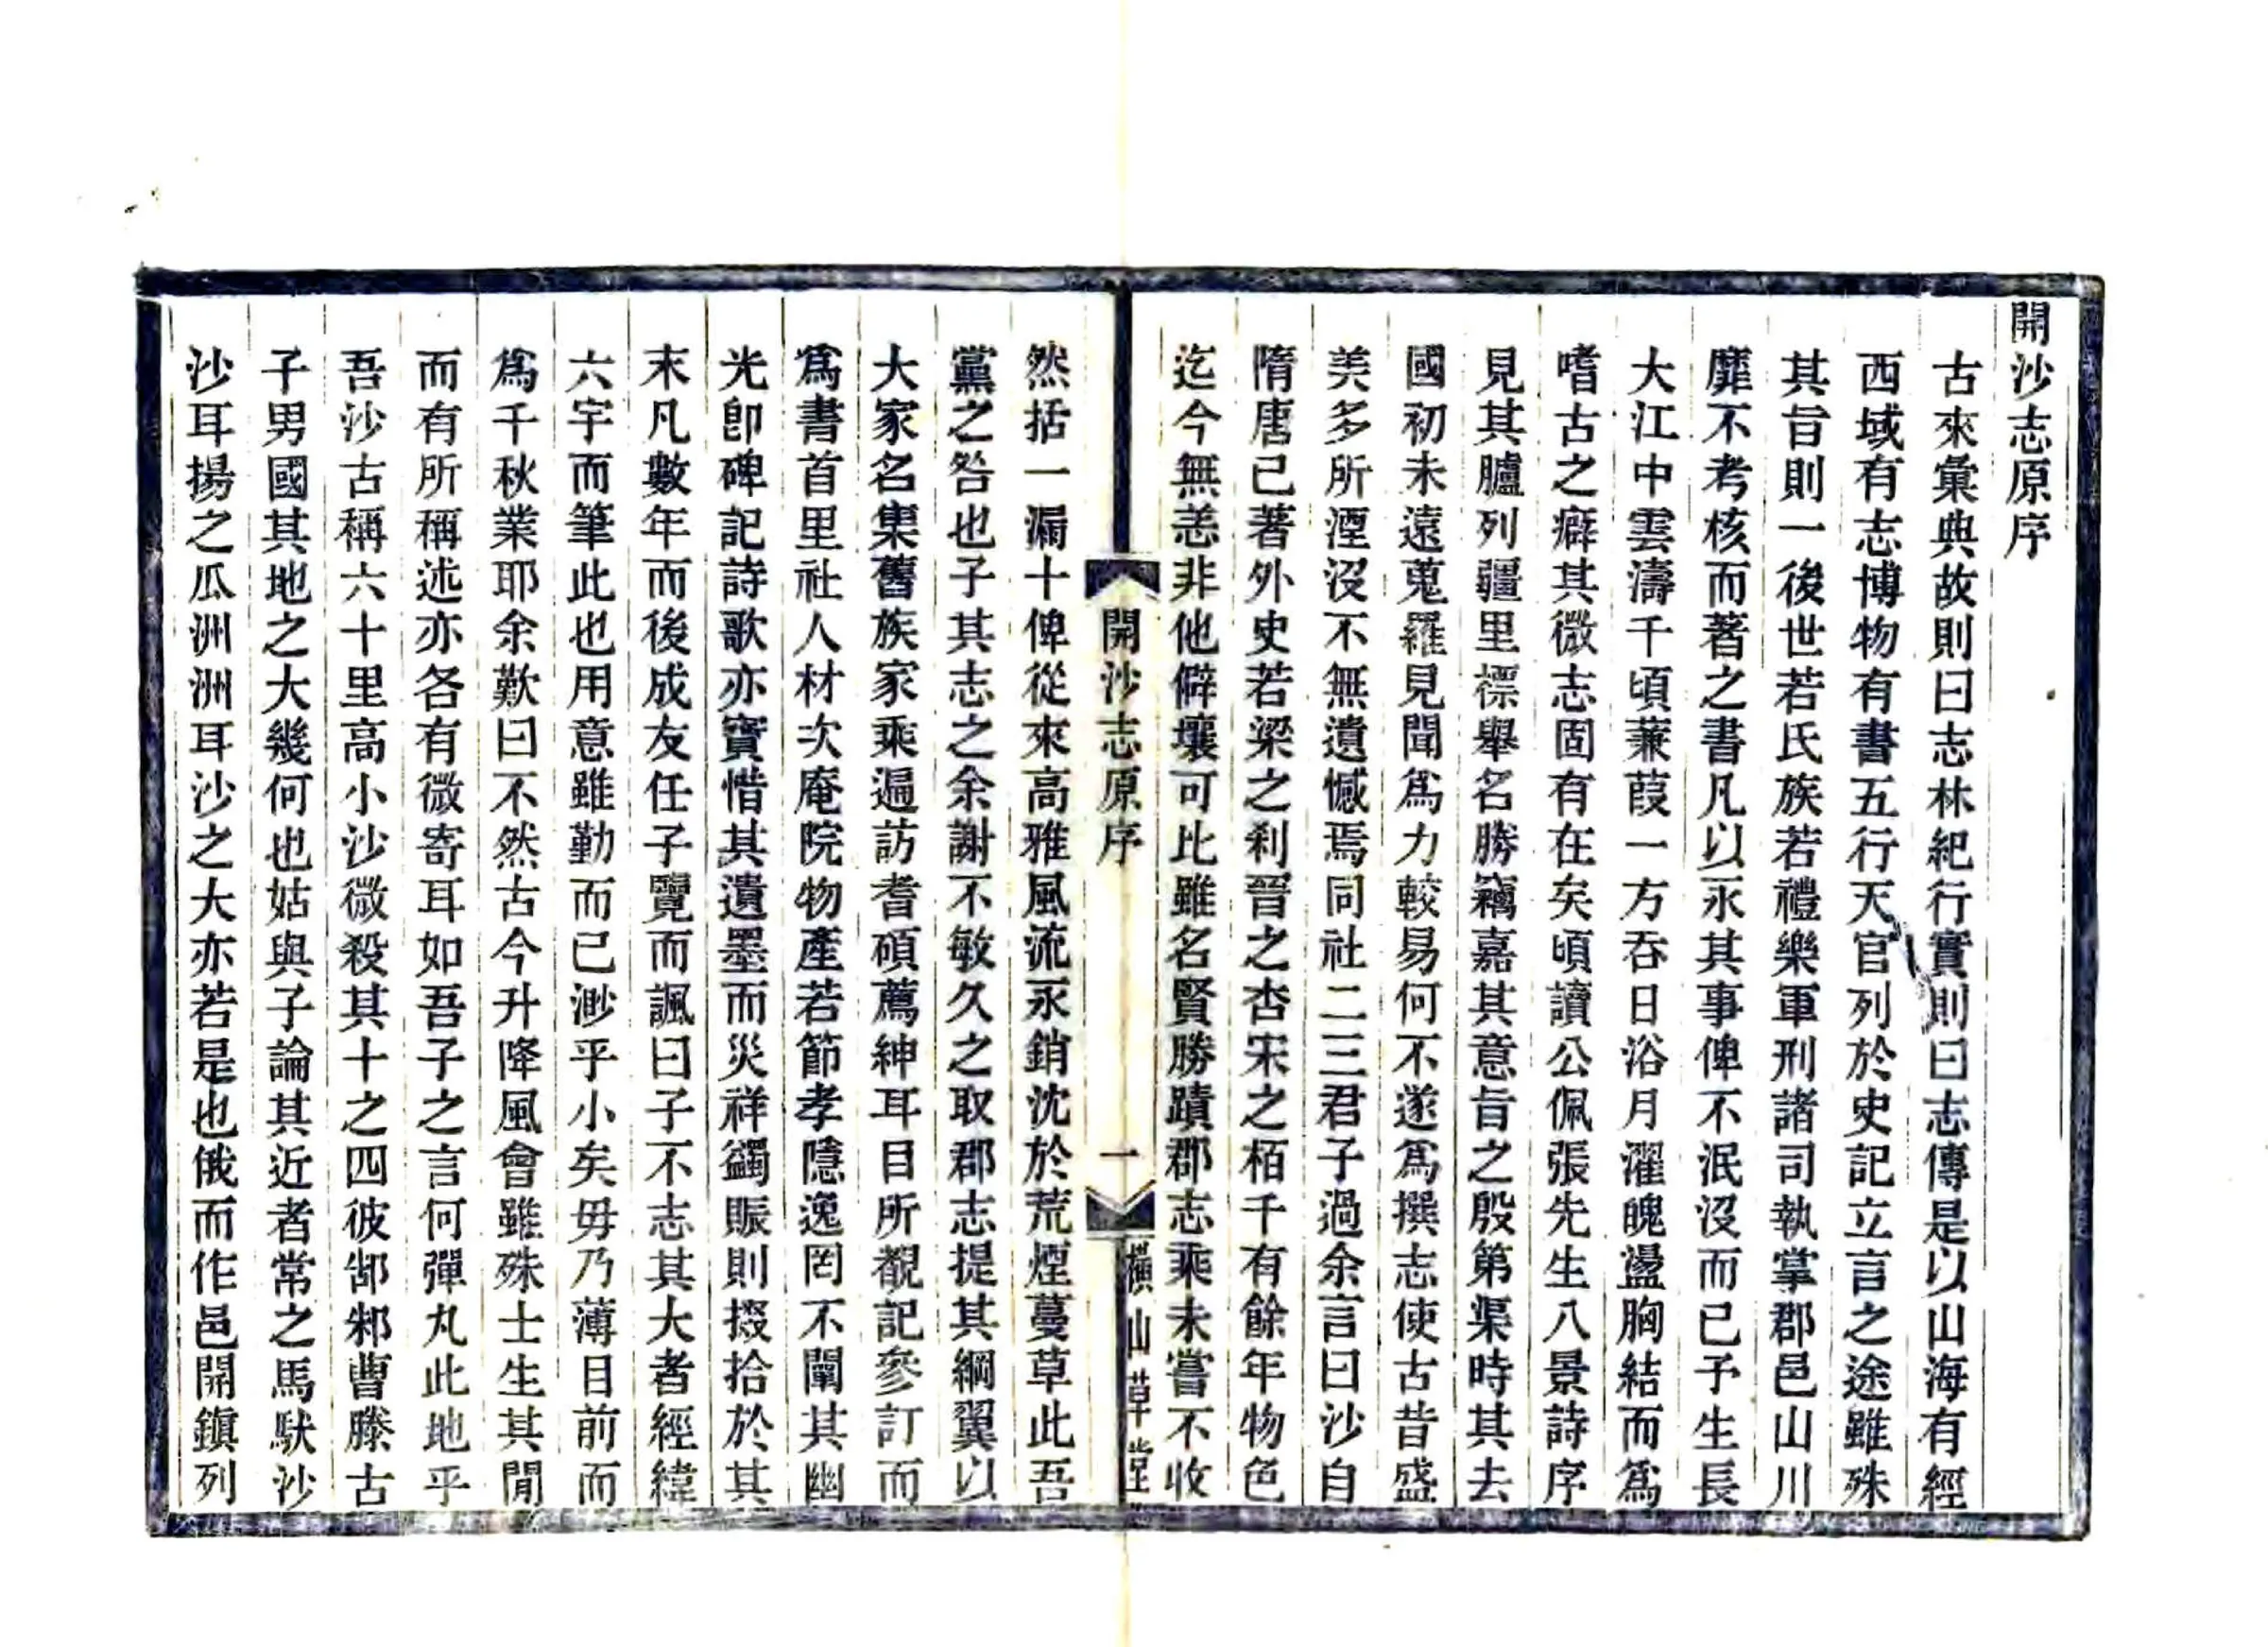 開沙志原序
古來彙典故則曰志林紀行實則曰志傳是以山海有經
西域有志博物有書五行天官列於史記立言之途雖殊
其旨則一後世若氏族若禮樂軍刑諸司執掌郡邑山川
靡不考核而著之書凡以永其事俾不泯沒而已予生長
大江中雲濤千頃蒹葭一方吞日浴月濯魄盪胸結而爲
嗜古之癖其微志固有在矣頃讀公佩張先生八景詩序
見其臚列疆里標舉名勝竊嘉其意旨之殷第渠時其去
國初未遠蒐羅見聞爲力較易何不遂爲撰志使古昔盛
美多所湮沒不無遺憾焉同社二三君子過余言曰沙自
隋唐已著外史若梁之刹晉之杏宋之栢千有餘年物色
迄今無恙非他僻壤可比雖名賢勝蹟郡志乘未嘗不收
開沙志原序
一
橫山草堂
然括一漏十俾從來高雅風流永銷沈於荒煙蔓草此吾
黨之咎也子其志之余謝不敏久之取郡志提其綱翼以
大家名集舊族家乘遍訪耆碩薦紳耳目所覩記參訂而
爲書首里社人材次庵院物產若節孝隱逸罔不闡其幽
光卽碑記詩歌亦寶惜其遺墨而災祥蠲賑則掇拾於其
末凡數年而後成友任子覽而諷曰子不志其大者經緯
六宇而筆此也用意雖勤而已渺乎小矣毋乃薄目前而
爲千秋業耶余歎曰不然古今升降風會雖殊士生其間
而有所稱述亦各有微寄耳如吾子之言何彈丸此地乎
吾沙古稱六十里高小沙微殺其十之四彼郜邾曹滕古
子男國其地之大幾何也姑與子論其近者常之馬馱沙
沙耳揚之瓜洲洲耳沙之大亦若是也俄而作邑開鎭列